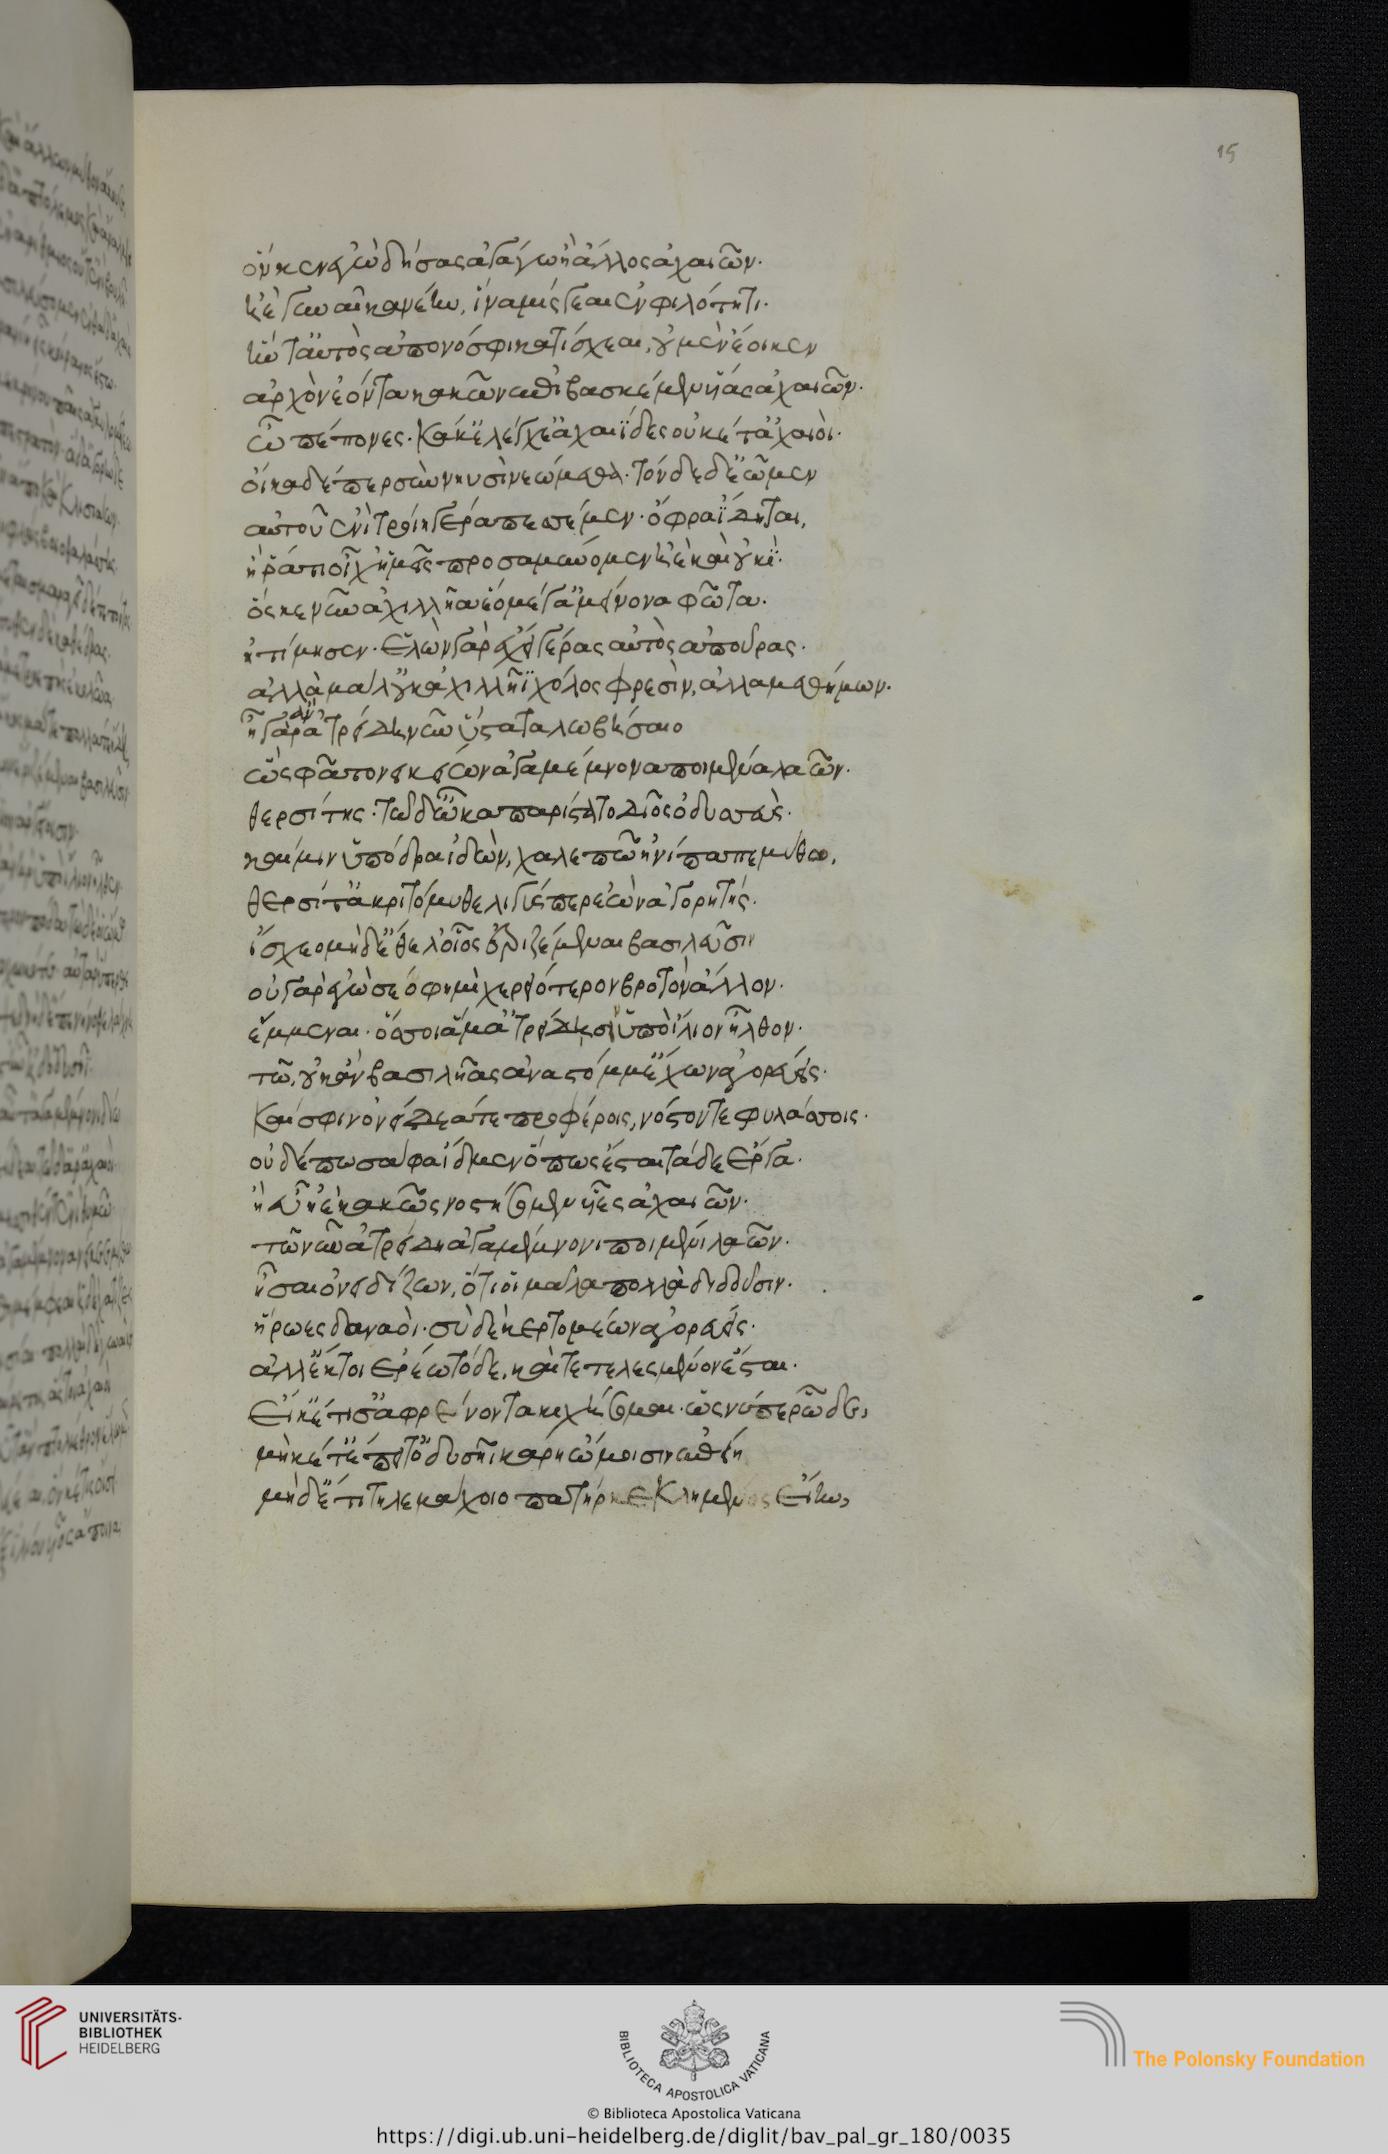 15
ὅν κεν ἐγὼ δήσας ἀγάγω ἢ ἄλλος ἀχαιῶν.
ἠὲ γυναῖκα νέην, ἵνα μίσγεαι ἐν φιλότητι.
ἥν τ' αὐτὸς ἀπονόσφι κατίσχεαι, οὐ μὲν ἔοικεν
ἀρχὸν ἐόντα κακῶν ἐπιβασκέμεν υἷας ἀχαιῶν.
ὦ πέπονες. κάκ' ἐλέγχε' ἀχαιΐδες οὐκέτ' ἀχαιοὶ.
οἴκαδέ περ σὺν νηυσὶ νεώμεθα. τόνδε δ' ἐῶμεν
αὐτοῦ ἐνὶ τροίῃ γέρα πεσσέμεν. ὄφρα ἴδηται,
ἤ ῥά τί οἱ χ' ἡμεῖς προσαμύνομεν ἠὲ καὶ οὐκί.
ὅς καὶ νῦν ἀχιλλῆα ἕο μέγ' ἀμείνονα φῶτα.
ἠτίμησεν. ἑλὼν γὰρ ἔχει γέρας αὐτὸς ἀπούρας.
ἀλλὰ μάλ' οὐκ ἀχιλλῆϊ χόλος φρεσὶν, ἀλλὰ μεθήμων.
ἦ γὰρ ἂν ἀτρείδη νῦν ὕστατα λωβήσαιο
ὣς φάτο νεικείων ἀγαμέμνονα ποιμένα λαῶν.
θερσίτης. τῷ δ' ὦκα παρίστατο δῖος ὀδυσσεύς.
καί μιν ὑπόδρα ἰδὼν, χαλεπῷ ἠνίπαπε μύθῳ,
θερσῖτ' ἀκριτόμυθε λιγύς περ ἐὼν ἀγορητής.
ἴσχεο μηδ' ἔθελ' οἶος ἐριζέμεναι βασιλεῦσιν
οὐ γὰρ ἐγὼ σέο φημὶ χερειότερον βροτὸν ἄλλον.
ἔμμεναι. ὅσσοι ἅμ' ἀτρείδῃς ὑπὸ ἴλιον ἦλθον.
τῷ, οὐκ ἂν βασιλῆας ἀνὰ στόμ' ἔχων ἀγορεύοις.
καί σφιν ὀνείδεά τε προφέροις, νόστόν τε φυλάσσοις.
οὐδέ πω σάφα ἴδμεν ὅπως ἔσται τάδε ἔργα.
ἢ εὖ ἠὲ κακῶς νοστήσομεν υἷες ἀχαιῶν.
τῶ νῦν ἀτρείδῃ ἀγαμέμνονι ποιμένι λαῶν.
ἧσαι ὀνειδίζων, ὅτι οἱ μάλα πολλὰ διδοῦσιν.
ἥρωες δαναοὶ. σὺ δὲ κερτομέων ἀγορεύεις.
ἀλλ' ἔκ τοι ἐρέω τόδε, καὶ τετελεσμένον ἔσται.
εἴ κ' ἔτι σ' ἀφραίνοντα κιχήσομαι. ὥς νύ περ ὧδε,
μηκέτ' ἔπειτ' ὀδυσῆι κάρη ὤμοισιν ἐπείη
μηδ' ἔτι τηλεμάχοιο πατὴρ κεκλημένος εἴην,
UNIVERSITÄTS-
BIBLIOTHEK
HEIDELBERG
BIBLIOTECA APOSTOLICA VATICANA
The Polonsky Foundation
© Biblioteca Apostolica Vaticana
https://digi.ub.uni-heidelberg.de/diglit/bav_pal_gr_180/0035